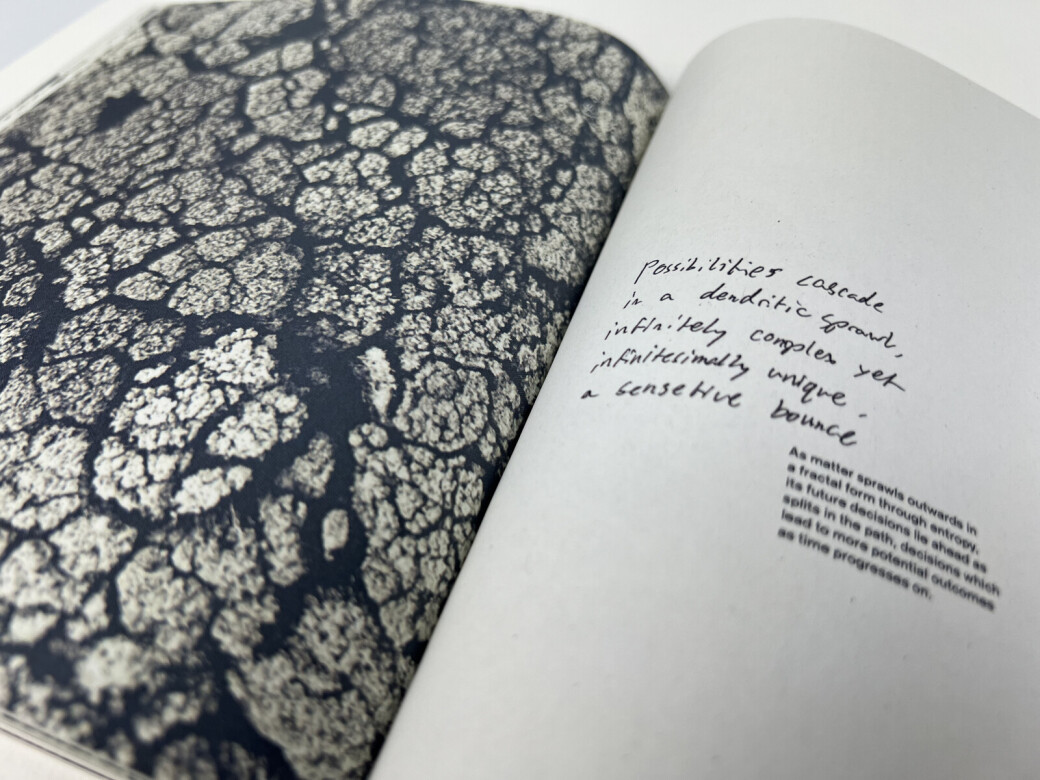 Possibilities cascade
in a dendritic sprawl,
infinitely complex yet
infinitesimally unique.
a sensetive bounce
As matter sprawls outwards in
a fractal form through entropy,
its future decisions lie ahead as
splits in the path, decisions which
lead to more potential outcomes
as time progresses on.